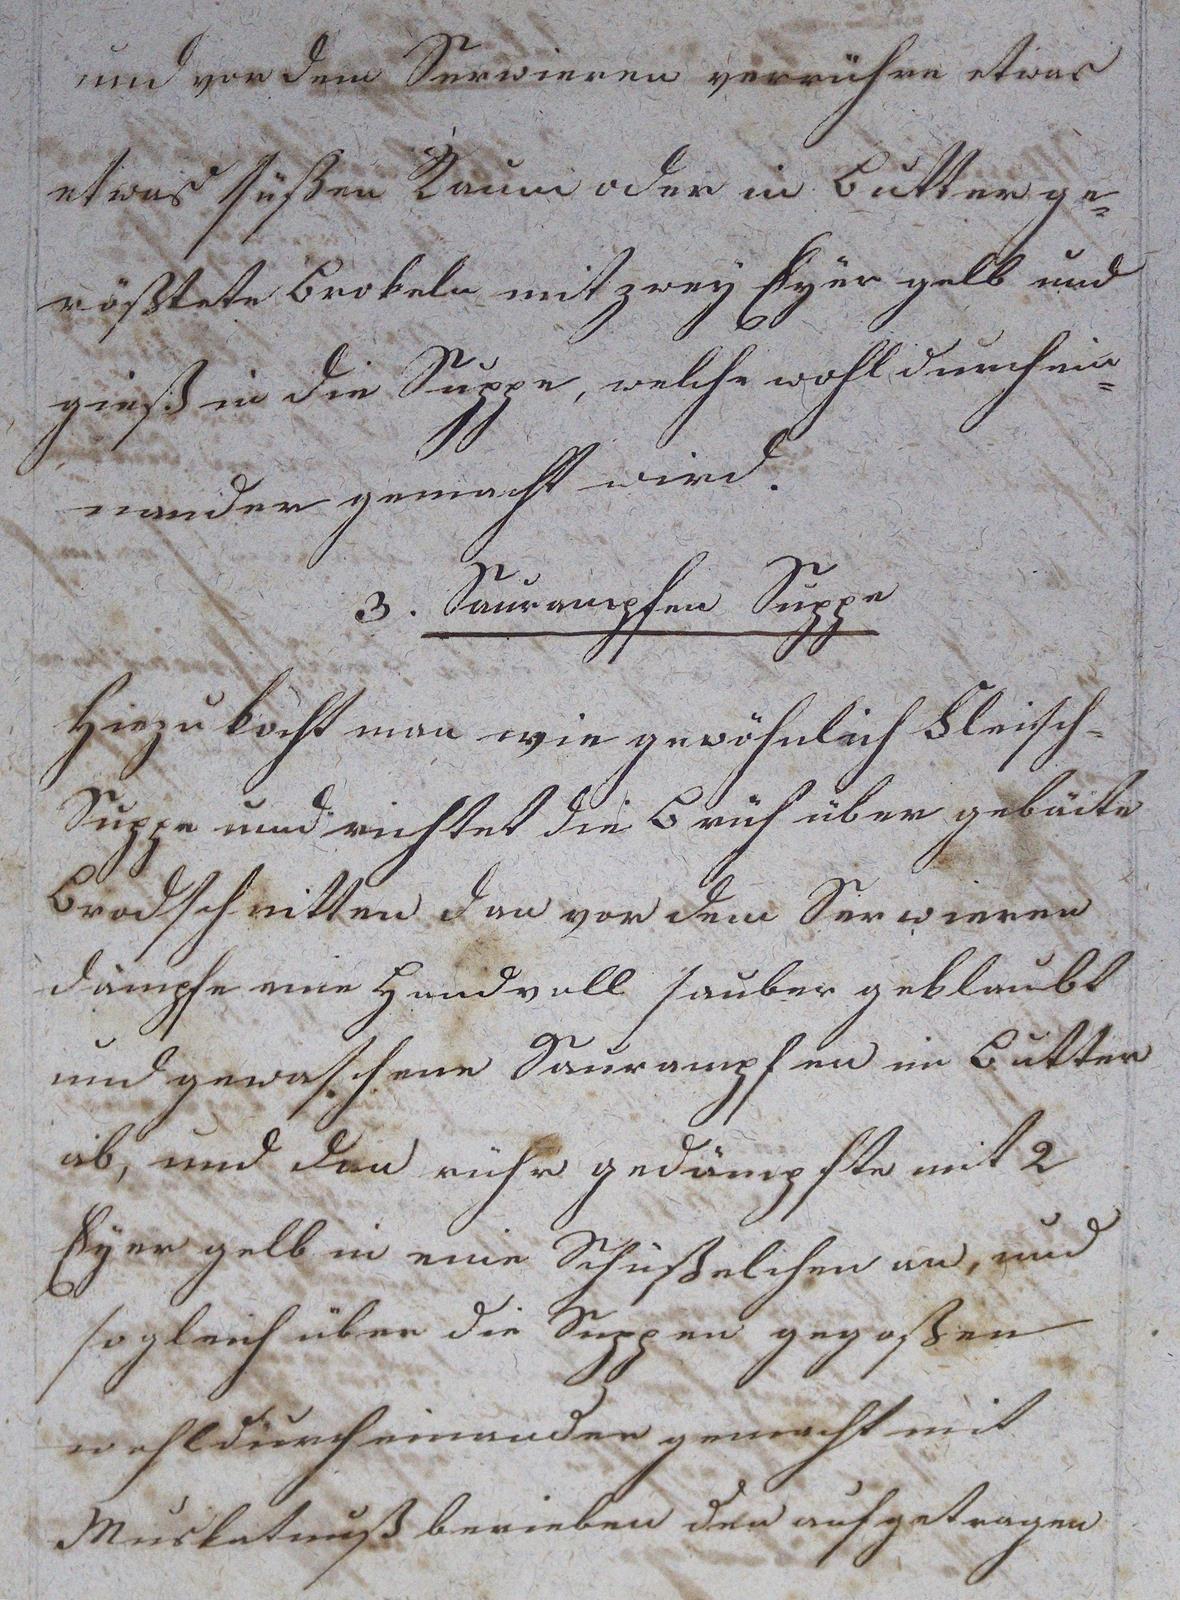 und vor dem Serwieren verrühre etwas
etwas süßen Raum oder in Butter ge=
rößtete Brokeln mit zwey Eyër gelb und
gieß in die Suppe, welche wohl durchein=
nander gemacht wird.
3. Saurampfen Suppe
Hiezu kocht man wie gewöhnlich Fleisch=
Suppe und richtet die Brüh über gebäite
Brodschnitten dan vor dem Serwieren
dämpfe eine Handvoll sauber geklaubt
und gewaschene Saurampfen in Butter
ab, und dan rühr gedämpfte mit 2
Eyer gelb in eine Schüßelchen an, und
sogleich über die Suppen gegoßen
wohl durcheinander gemacht mit
Muskatnuß berieben dan aufgetragen